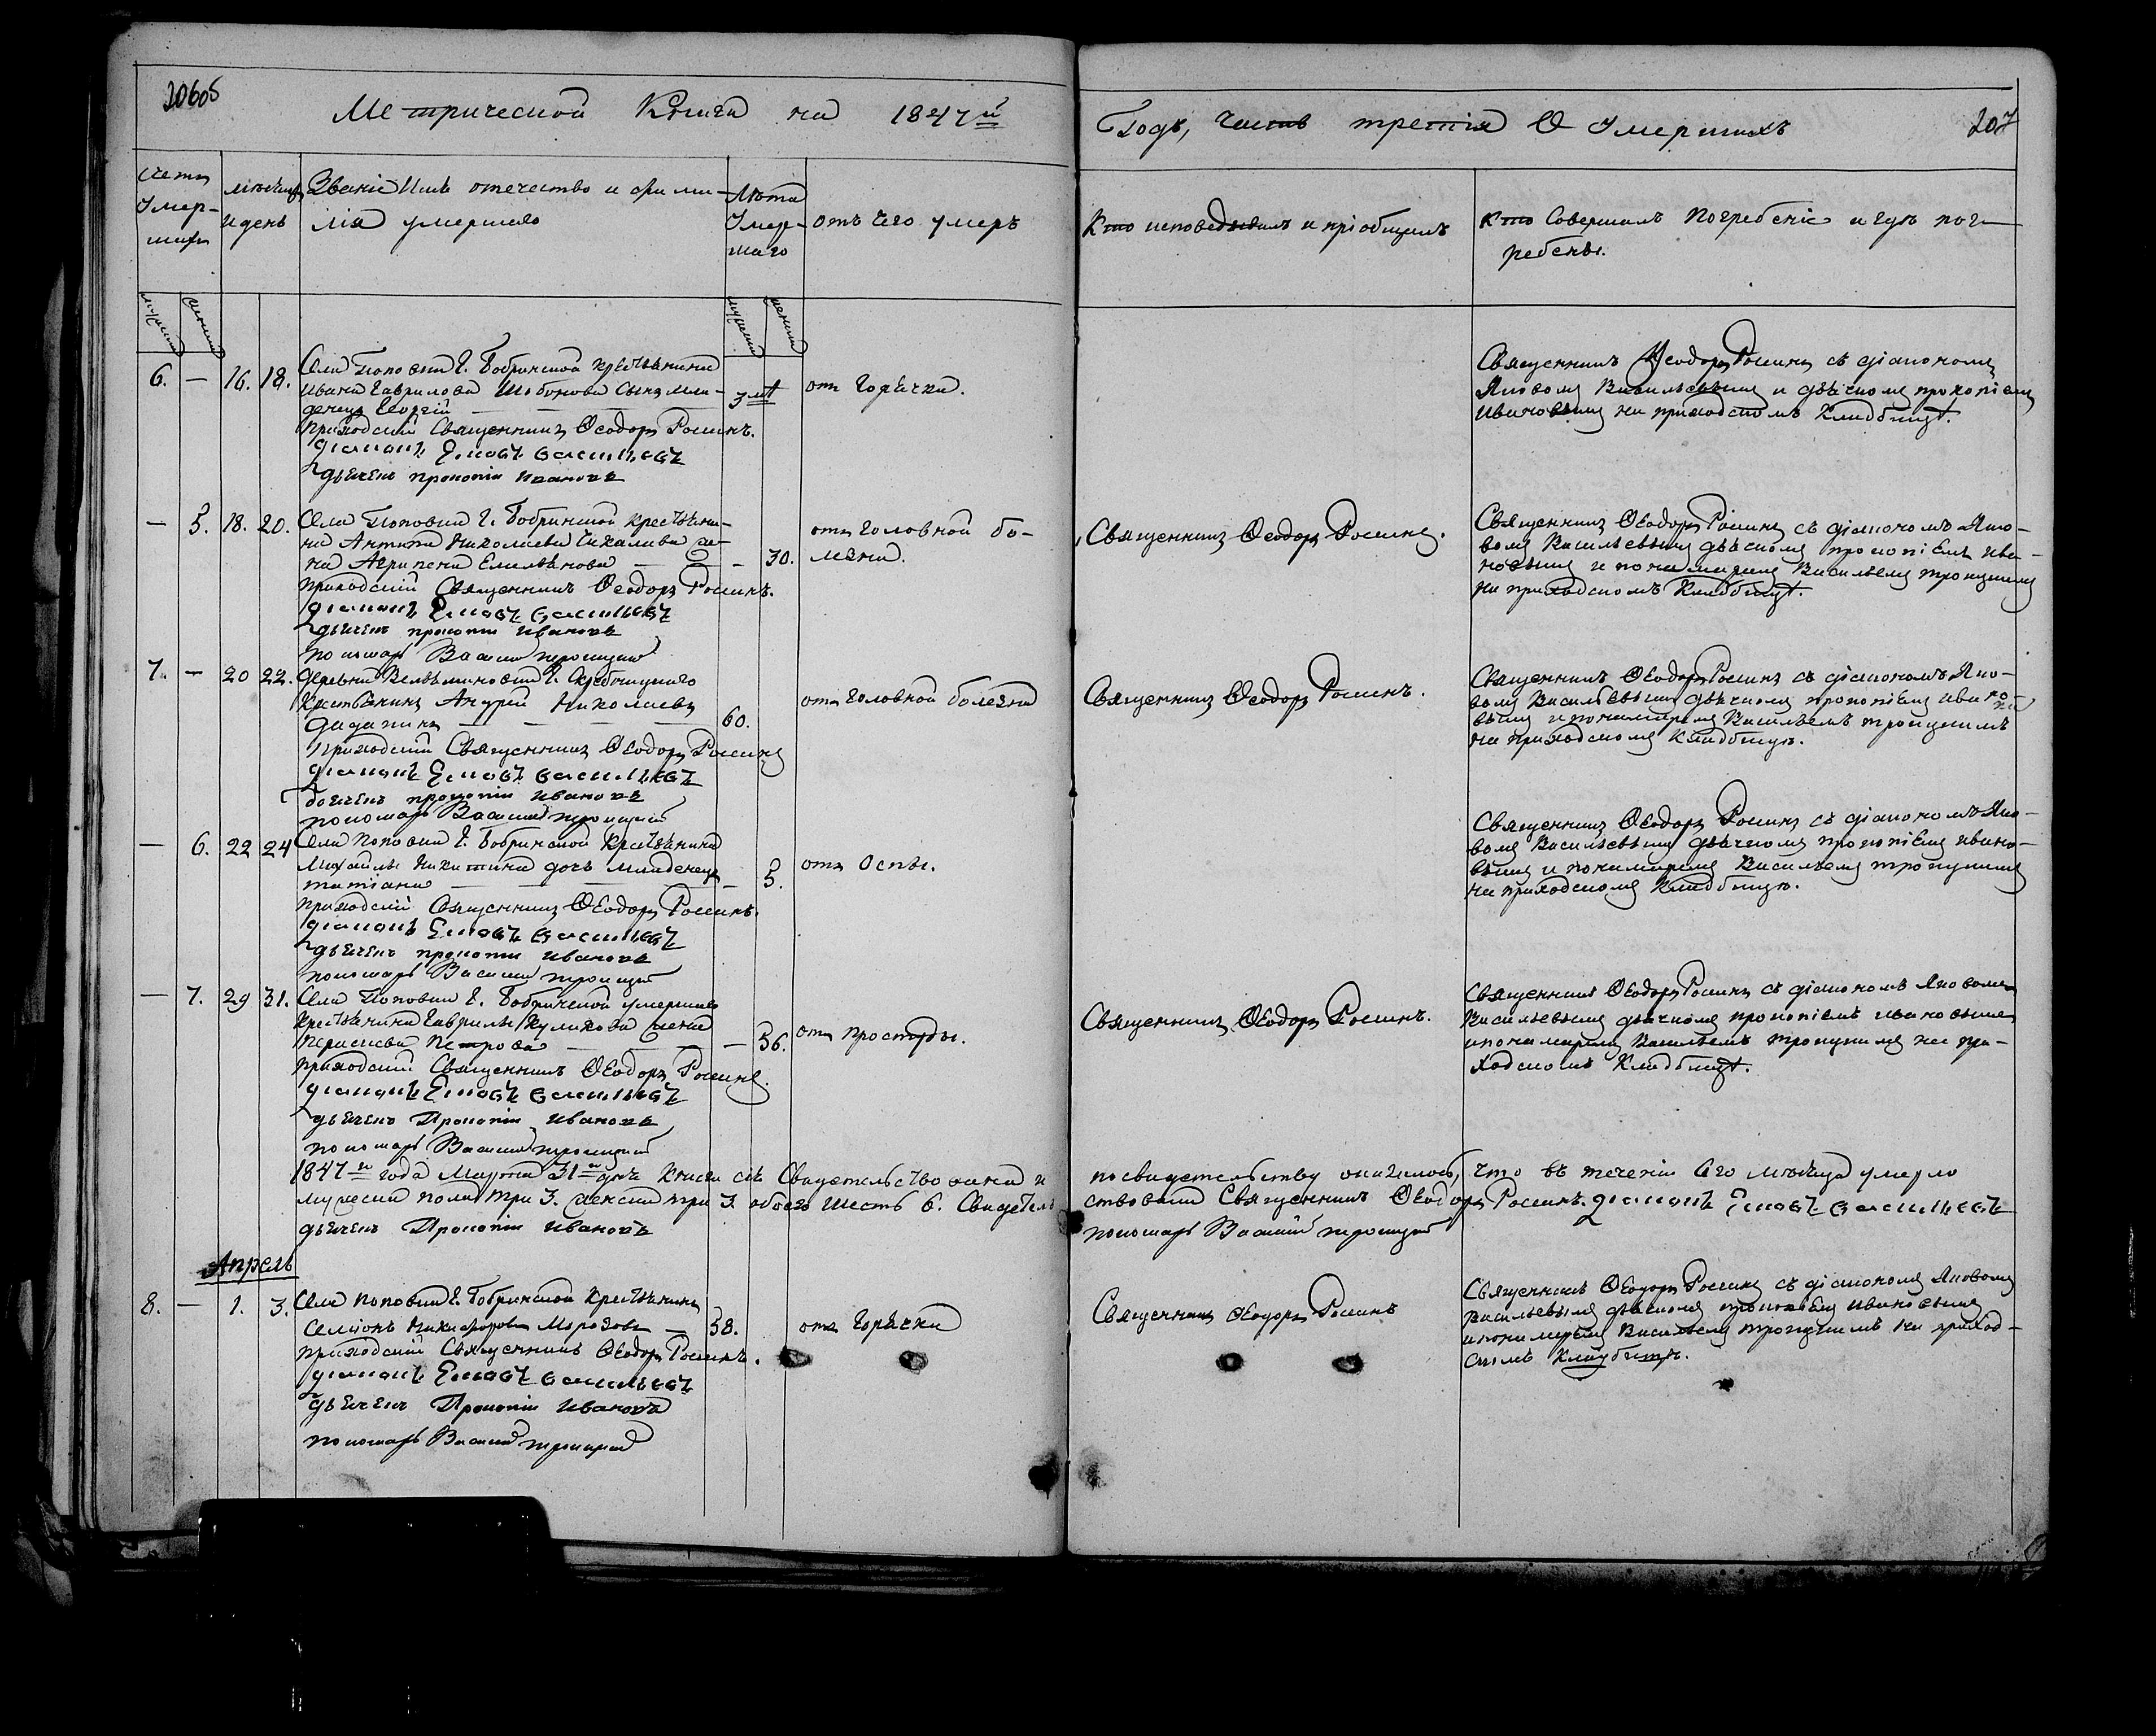 Метрической Книги на 1847й
Годъ, часть третія О Умершихъ
207
Счетъ Умер-шихъ
мѣсяцъ и день
Званіе Имя отечество и фами-
лія умершаго
Лѣта Умер-шаго
отъ чего умеръ
Кто исповедывалъ и пріобщилъ
Кто Совершалъ Погребеніе и гдѣ пог-
ребены.
6. — 16. 18.
Села Поповки Г. Бобринской крестьянина
Ивана Гаврилова сынъ мла-
денецъ Георгій
3
отъ Горячки.
Приходскій Священникъ Ѳеодоръ Росинъ.
діаконъ Яковъ Васильевъ
дьячекъ Прокопій Ивановъ
Священникъ Ѳеодоръ Росинъ съ діакономъ
Яковомъ Васильевымъ и дьячкомъ прокопіемъ
Ивановымъ на приходскомъ Кладбищѣ.
— 5. 18. 20.
Села Поповки Г. Бобринской крестьяни-
на Антипа Николаева Чикалина же-
на Агрипена Емельянова
— 30.
отъ Головной бо-
лѣзни.
Приходскій Священникъ Ѳеодоръ Росинъ.
діаконъ Яковъ Васильевъ
дьячекъ прокопій Ивановъ
пономарь Василій троицкій
Священникъ Ѳеодоръ Росинъ.
Священникъ Ѳеодоръ Росинъ съ діакономъ Яко-
вомъ Васильевымъ дьячкомъ прокопіемъ Ива-
новымъ и пономаремъ Васильемъ троицкимъ
на приходскомъ Кладбищѣ.
7. — 20 22.
Деревни Вельяминовки Г.
Крестьянинъ Андрей Николаевъ
60.
отъ Головной болезни
Приходскій Священникъ Ѳеодоръ Росинъ
діаконъ Яковъ Васильевъ
дьячекъ прокопій Ивановъ
пономарь Василій троицкій
Священникъ Ѳеодоръ Росинъ.
Священникъ Ѳеодоръ Росинъ съ діакономъ Яко-
вомъ Васильевымъ дьячкомъ прокопіемъ Ивано-
вымъ и пономаремъ Васильемъ троицкимъ
на приходскомъ Кладбищѣ.
— 6. 22 24
Села Поповки Г. Бобринской Крестьянина
Михайлы Никитина дочь младенецъ
татіана
— 5.
отъ Оспы.
Приходскій Священникъ Ѳеодоръ Росинъ.
діаконъ Яковъ Васильевъ
дьячекъ прокопій Ивановъ
пономарь Василій троицкій
Священникъ Ѳеодоръ Росинъ съ діакономъ Яко-
вомъ Васильевымъ дьячкомъ прокопіемъ Ивано-
вымъ и пономаремъ Васильемъ троицкимъ
на приходскомъ Кладбищѣ.
— 7. 29 31.
Села Поповки Г. Бобринской умершаго
Крестьянина Гаврилы Куликова жена
Петрова
— 36.
отъ простуды.
Приходскій Священникъ Ѳеодоръ Росинъ.
діаконъ Яковъ Васильевъ
дьячекъ Прокопій Ивановъ
пономарь Василій троицкій
Священникъ Ѳеодоръ Росинъ.
Священникъ Ѳеодоръ Росинъ съ діакономъ Яковомъ
Васильевымъ дьячкомъ прокопіемъ Ивановымъ
и пономаремъ Васильемъ троицкимъ на при-
ходскомъ Кладбищѣ.
1847го года Марта 31го дня Книга сія Свидетельствована и по свидетельству оказалось, что въ теченіи Сего мѣсяца умерло
мужеска пола три 3. женска три 3. обоего Шесть 6. Свидетель-ствовали Священникъ Ѳеодоръ Росинъ. діаконъ Яковъ Васильевъ
дьячекъ Прокопій Ивановъ пономарь Василій троицкій
Апрель
8. — 1. 3.
Села Поповки Г. Бобринской Крестьянинъ
Семіонъ Никифоровъ Морозовъ — 38.
отъ Горячки
Приходскій Священникъ Ѳеодоръ Росинъ.
діаконъ Яковъ Васильевъ
дьячекъ Прокопій Ивановъ
пономарь Василій троицкій
Священникъ Ѳеодоръ Росинъ
Священникъ Ѳеодоръ Росинъ съ діакономъ Яковомъ
Васильевымъ дьячкомъ прокопіемъ Ивановымъ
и пономаремъ Васильемъ троицкимъ на приход-
скомъ Кладбищѣ.